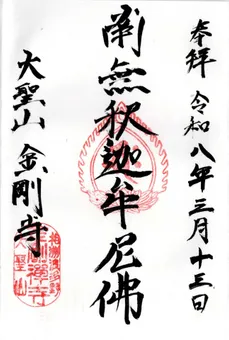 奉拝 令和八年三月十三日
南無釈迦牟尼佛
大聖山 金剛寺